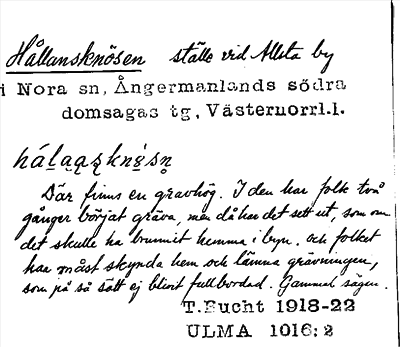 Hållansknösen ställe vid Allsta by
i Nora sn, Ångermanlands södra
domsagas tg, Västernorrl.l.
Där finns en gravhög. I den har folk två
gånger börjat gräva, men då har det sett ut, som om
det skulle ha brunnit hemma i byn, och folket
har måst skynda hem och lämna grävningen,
som på så sätt ej blivit fullbordad. Gammal sägen.
T.Bucht 1918-22
ULMA 1016:2